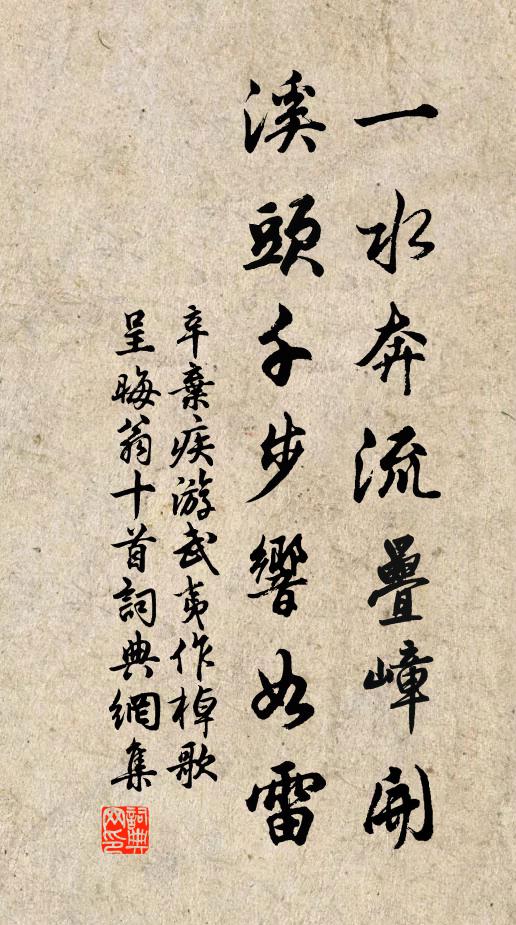 一水奔流疊嶂開
溪頭千步響如雷
辛棄疾游武夷作棹歌
呈晦翁十首詞典網集
詞典網印